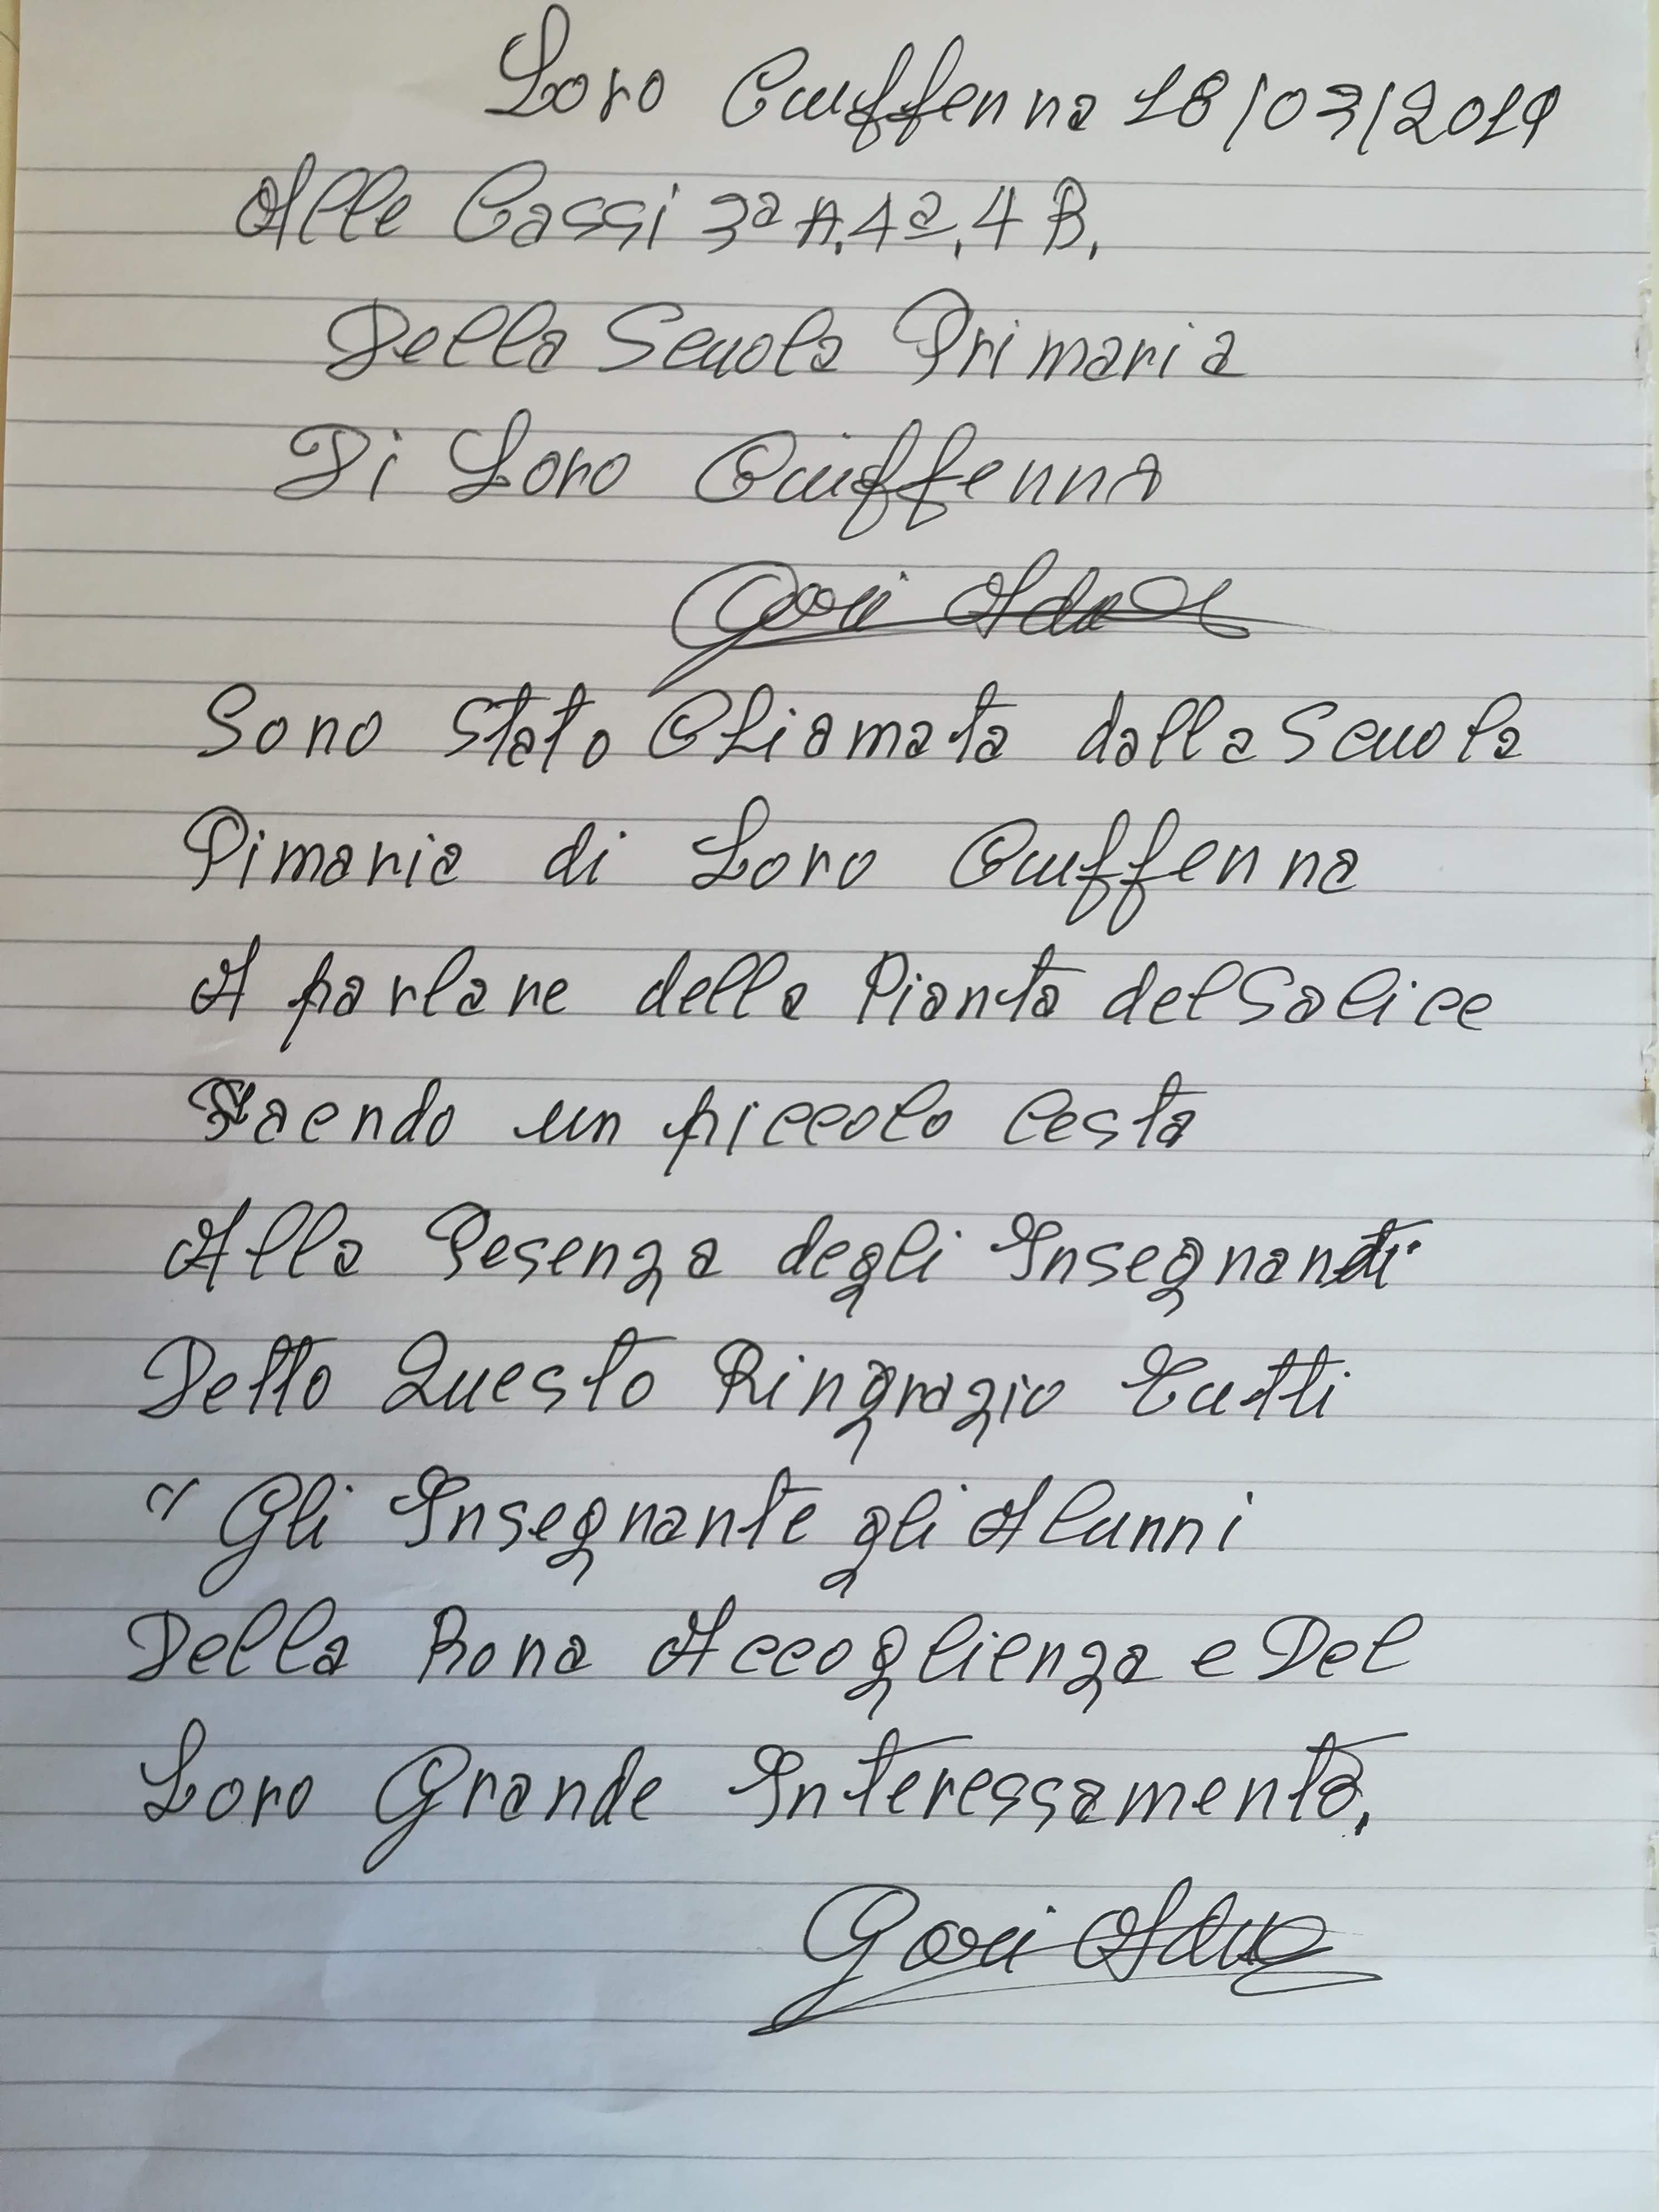 Loro Ciuffenna 18/03/2019
Alle Cassi 3ª A, 4ª, 4 B,
Della Scuola Primaria
Di Loro Ciuffenna
Gori
Sono stato Chiamata dalla Scuola
Pimaria di Loro Ciuffenna
A parlare della Pianta del Salice
Facendo un piccolo Cesta
Alla Pesenza degli Insegnanti
Detto Questo Ringrazio Tutti
Gli Insegnante gli Alunni
Della Bona Accoglienza e Del
Loro Grande Interessamento,
Gori